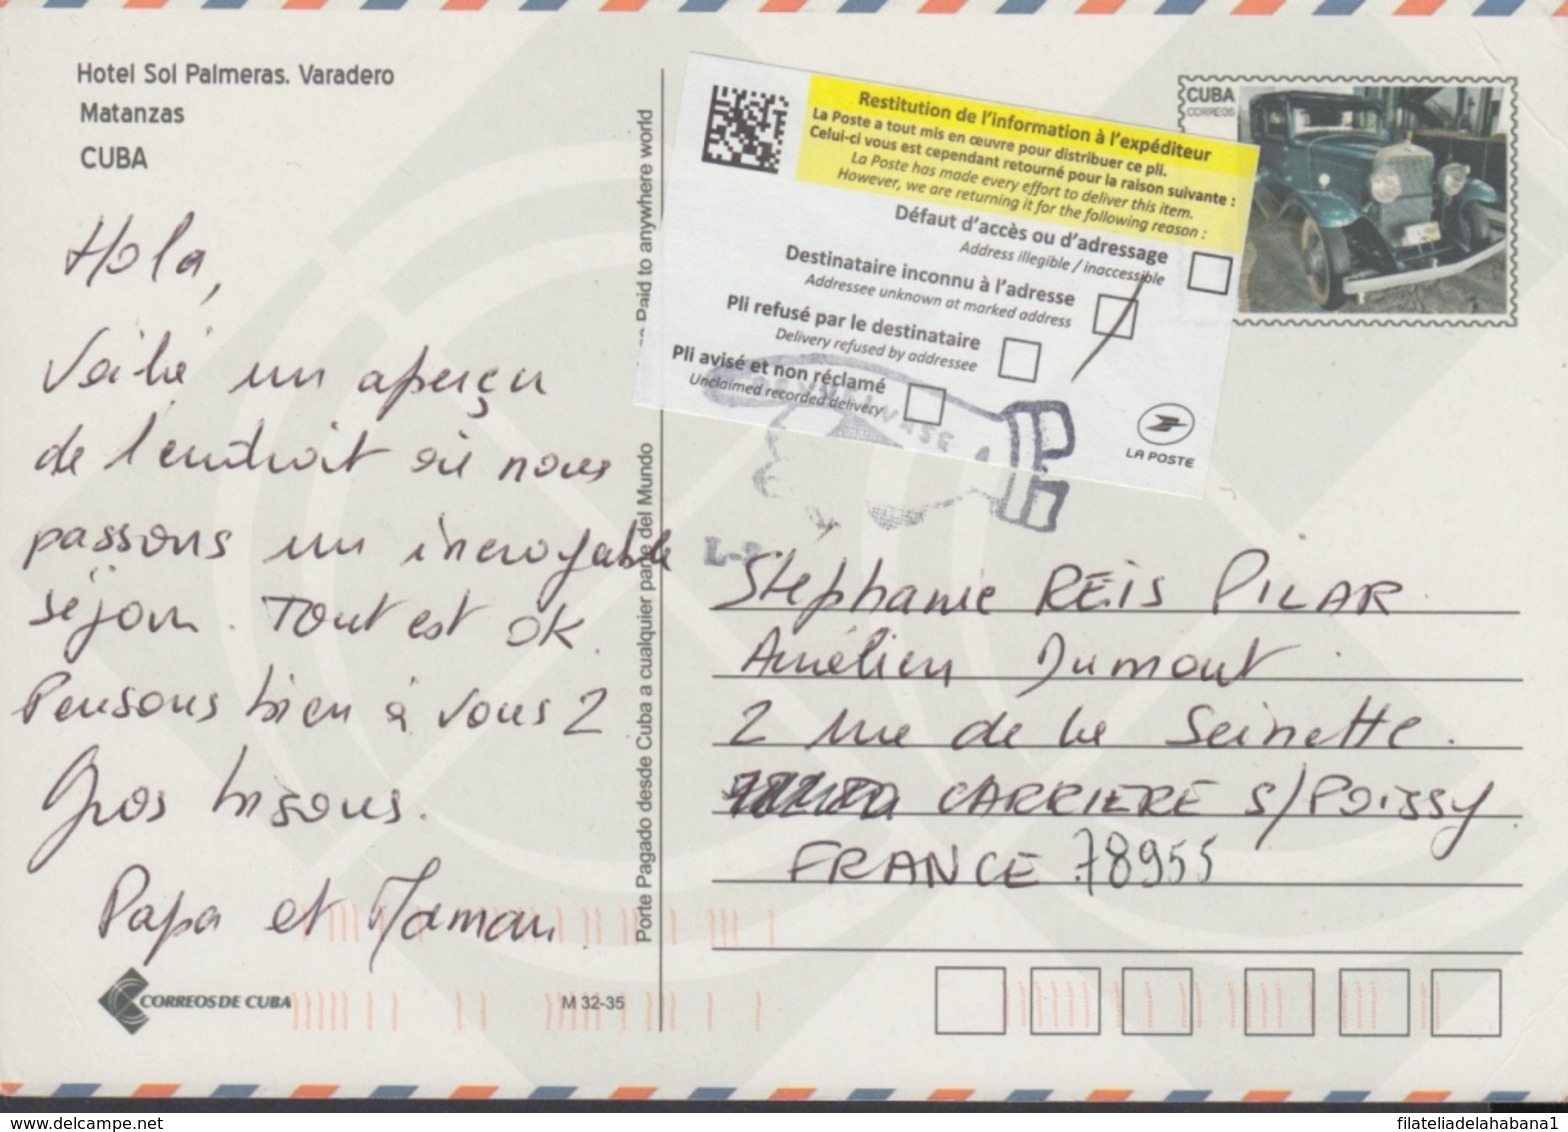 Hotel Sol Palmeras. Varadero
Matanzas
CUBA
Hola,
Voilà un aperçu
de l'endroit où nous
passons un incroyable
séjour. Tout est ok.
Pensons bien à vous 2
Gros bisous.
Papa et Maman.
CORREOS DE CUBA
M 32-35
Paid to anywhere world
Porte Pagado desde Cuba a cualquier parte del Mundo
Restitution de l'information à l'expéditeur
La Poste a tout mis en œuvre pour distribuer ce pli.
Celui-ci vous est cependant retourné pour la raison suivante :
La Poste has made every effort to deliver this item.
However, we are returning it for the following reason :
Défaut d'accès ou d'adressage
Address illegible / inaccessible
Destinataire inconnu à l'adresse
Addressee unknown at marked address
Pli refusé par le destinataire
Delivery refused by addressee
Pli avisé et non réclamé
Unclaimed recorded delivery
LA POSTE
CUBA
CORREOS
DEVUELVASE A
Stéphanie REIS PILAR
Aurélien Dumont
2 rue de la Seinette.
CARRIERE S/POISSY
FRANCE 78955
filateliadelahabana1